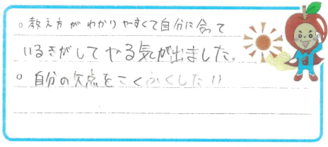 ○教え方がわかりやすくて自分に会って
いるきがしてやる気が出ました。
○自分の欠点をこくふくしたい